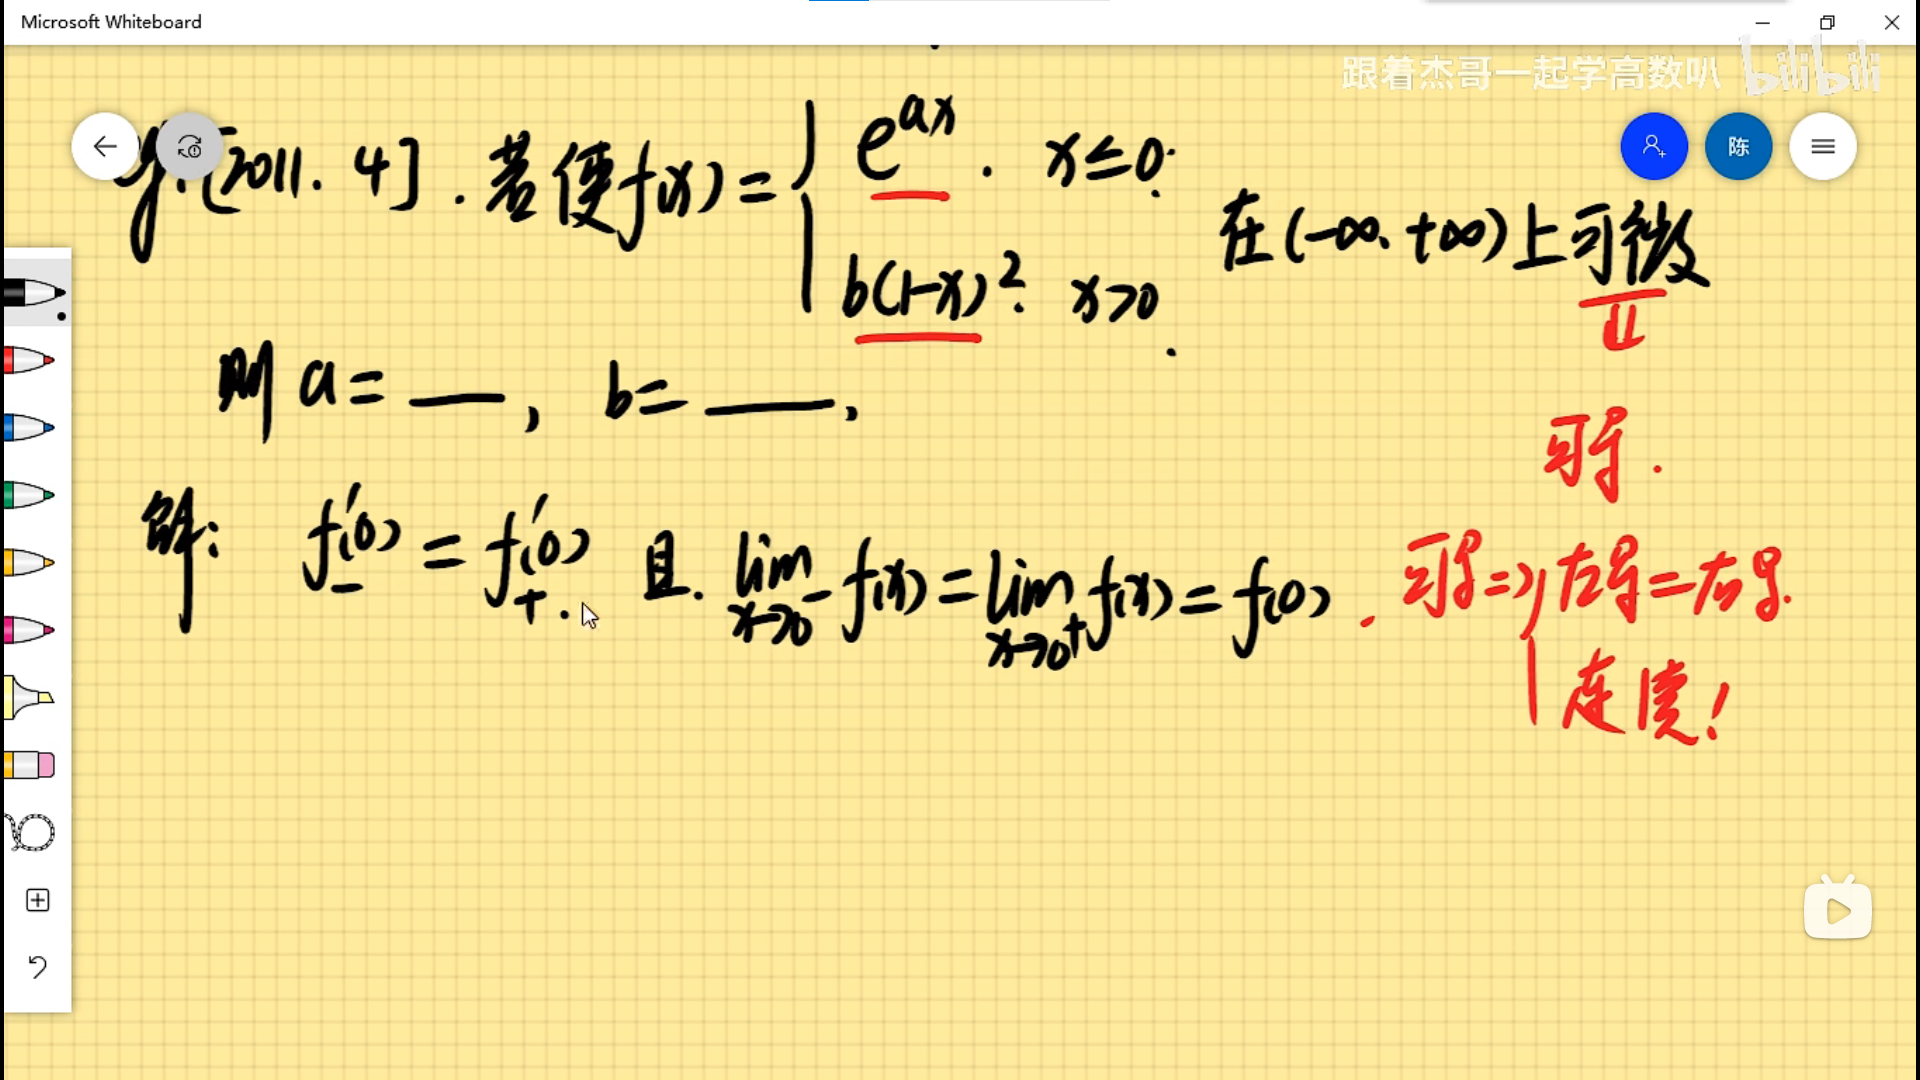 Microsoft Whiteboard
跟着杰哥一起学高数叭 bilibili
陈
[2011.4].若使f(x)= { e^{ax}. x≤0.
b(1-x)². x>0.
在(-∞.+∞)上可微
⇓
则a=___, b=___.
可导.
解: f'₋(0) = f'₊(0). 且. lim_{x→0⁻} f(x) = lim_{x→0⁺} f(x) = f(0).
可导⇒{左导=右导.
连续!